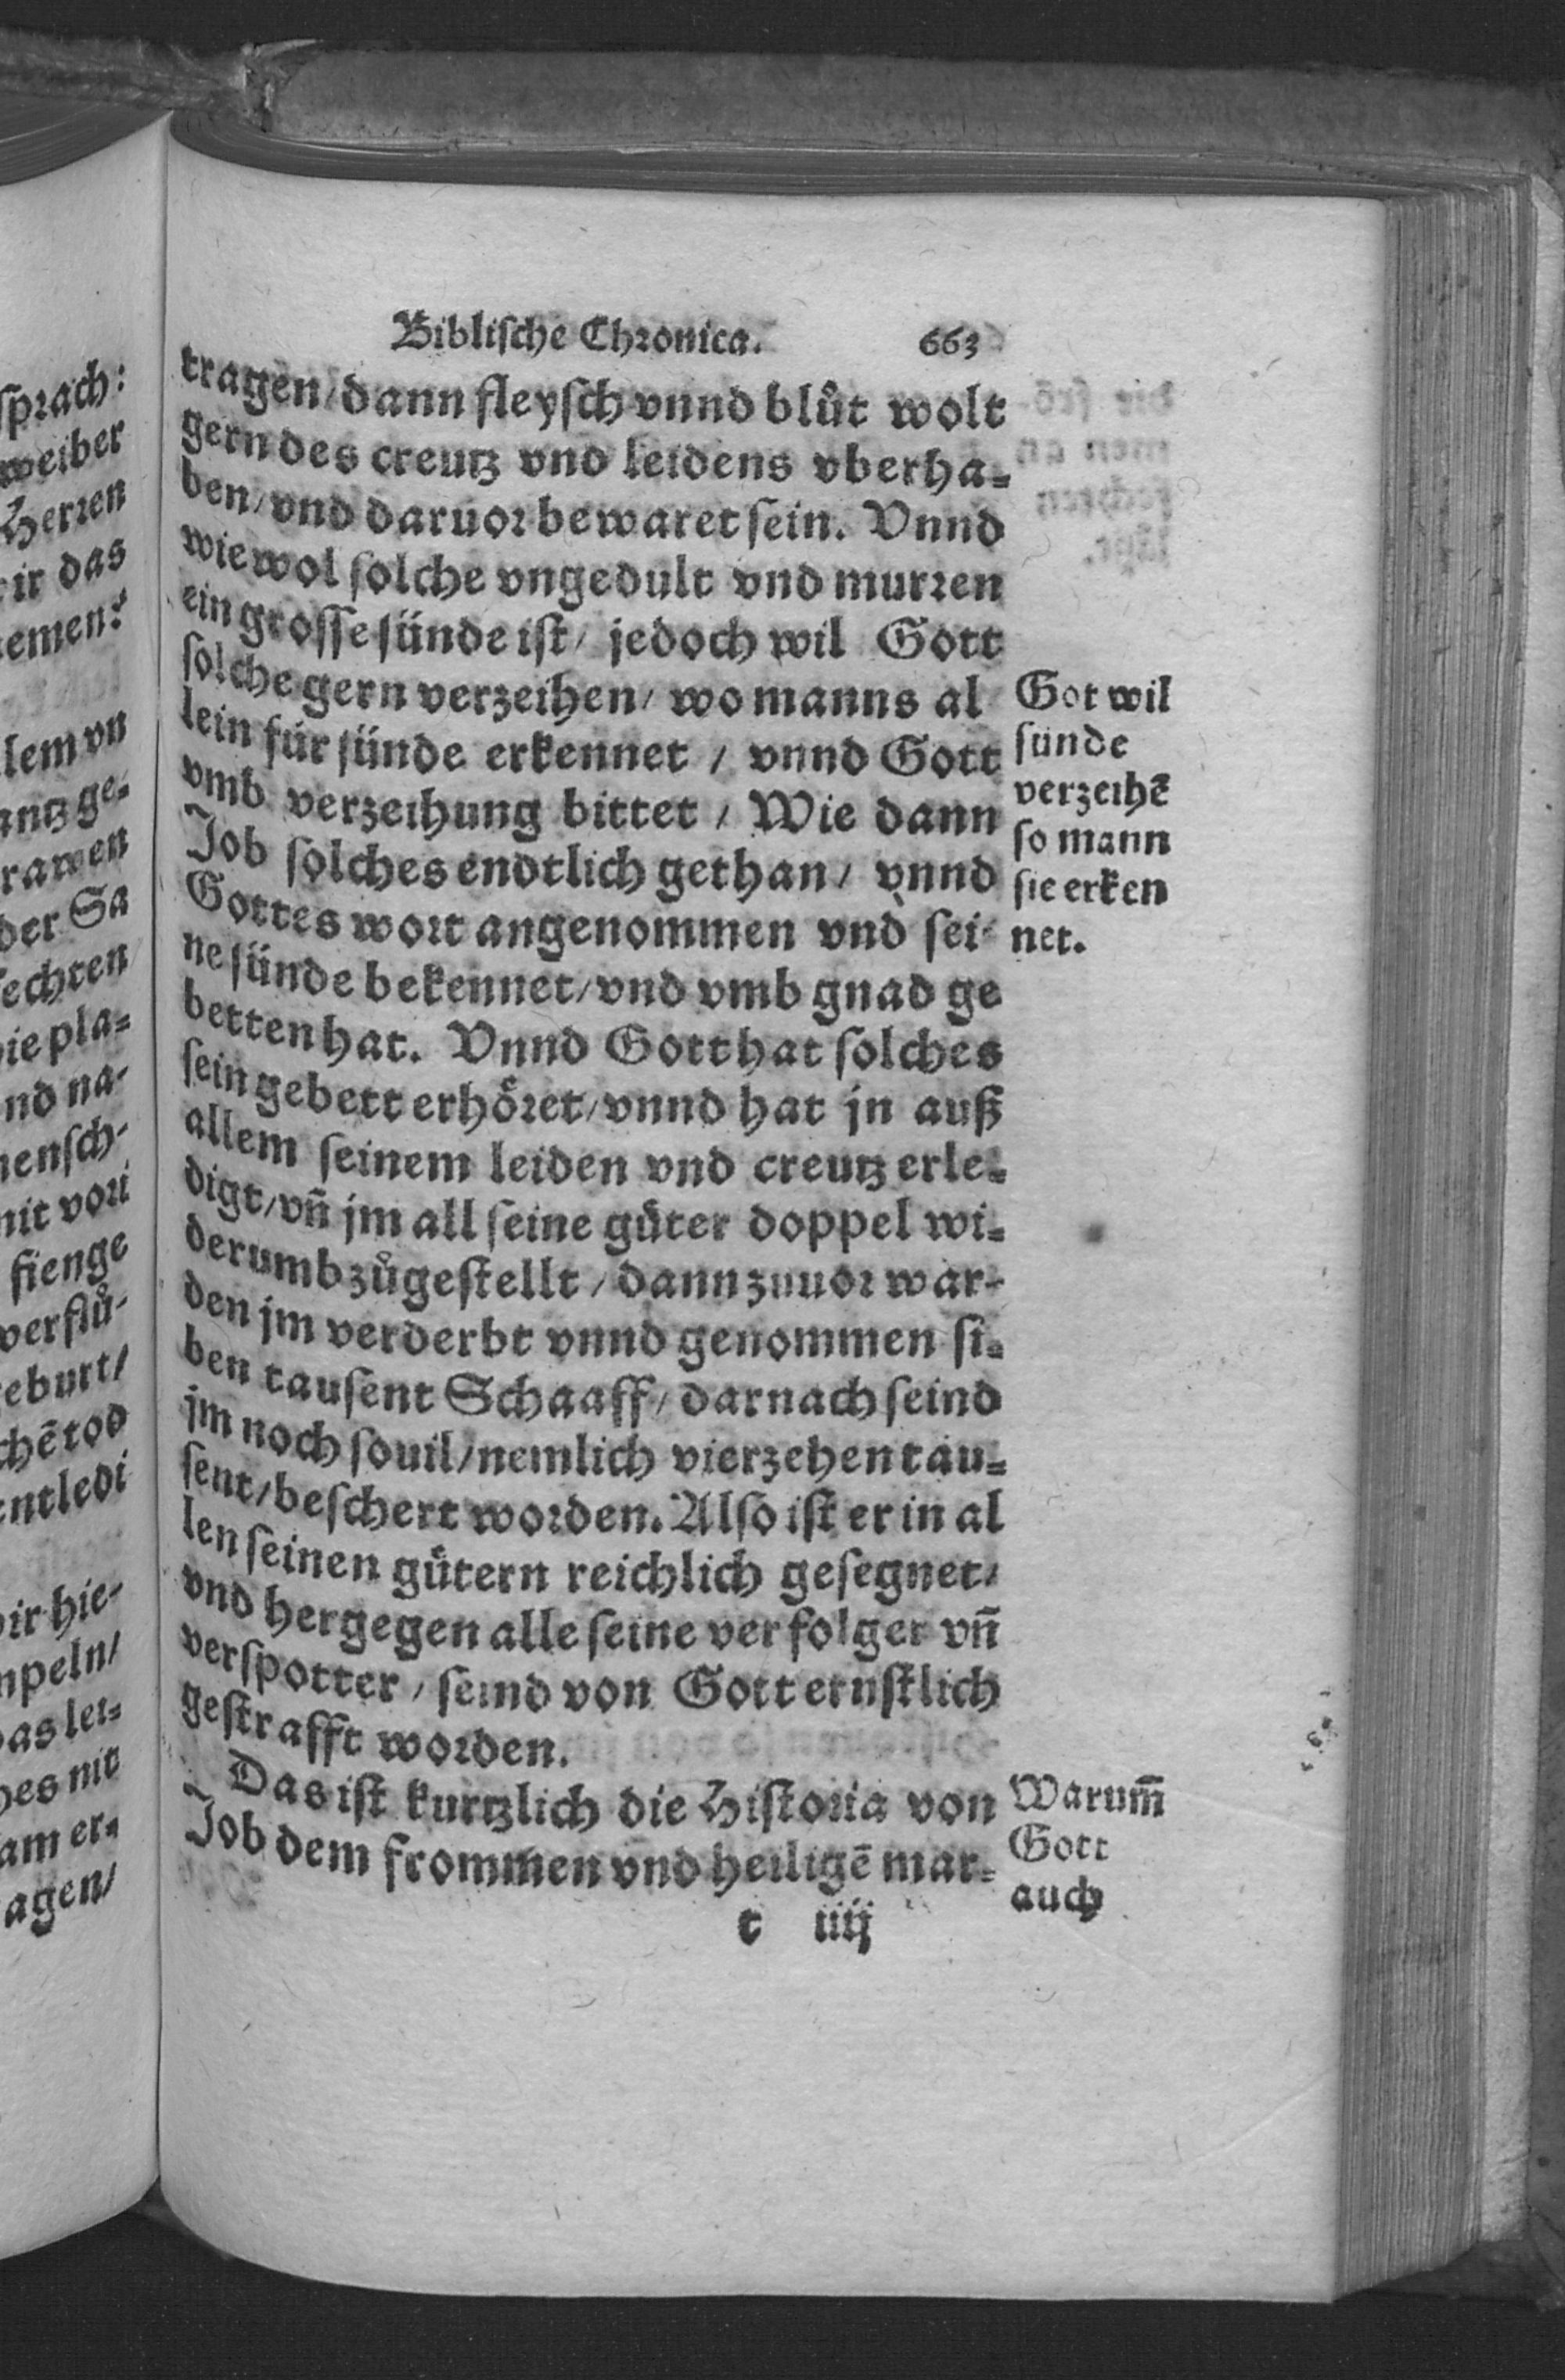 Biblische Chronica. 663
tragen/dann fleysch vnnd blůt wolt
gern des creutz vnd leidens vberha-
ben/vnd daruor bewaret sein. Vnnd
wiewol solche vngedult vnd murren
ein grosse sünde ist/ jedoch wil Gott
solche gern verzeihen/ wo manns al
lein für sünde erkennet / vnnd Gott
vmb verzeihung bittet / Wie dann
Job solches endtlich gethan/ vnnd
Gottes wort angenommen vnd sei-
ne sünde bekennet/vnd vmb gnad ge
betten hat. Vnnd Gott hat solches
sein gebett erhöret/vnnd hat jn auß
allem seinem leiden vnd creutz erle-
digt/vn̄ jm all seine güter doppel wi-
derumb zůgestellt / dann zuuor war-
den jm verderbt vnnd genommen si-
ben tausent Schaaff/ darnach seind
jm noch souil/nemlich vierzehen tau-
sent/beschert worden. Also ist er in al
len seinen gütern reichlich gesegnet/
vnd hergegen alle seine verfolger vn̄
verspotter / seind von Gott ernstlich
gestrafft worden.
Das ist kurtzlich die Historia von
Job dem frommen vnd heiligē mar-
t iiij
Got wil
sünde
verzeihē
so mann
sie erken
net.
Warum̄
Gott
auch
sprach:
weiber
Herren
ir das
lem vn
der Sa
pla-
nd na-
mensch-
fienge
verflů-
chē tod
entledi
hie-
das lei-
am er-
agen/